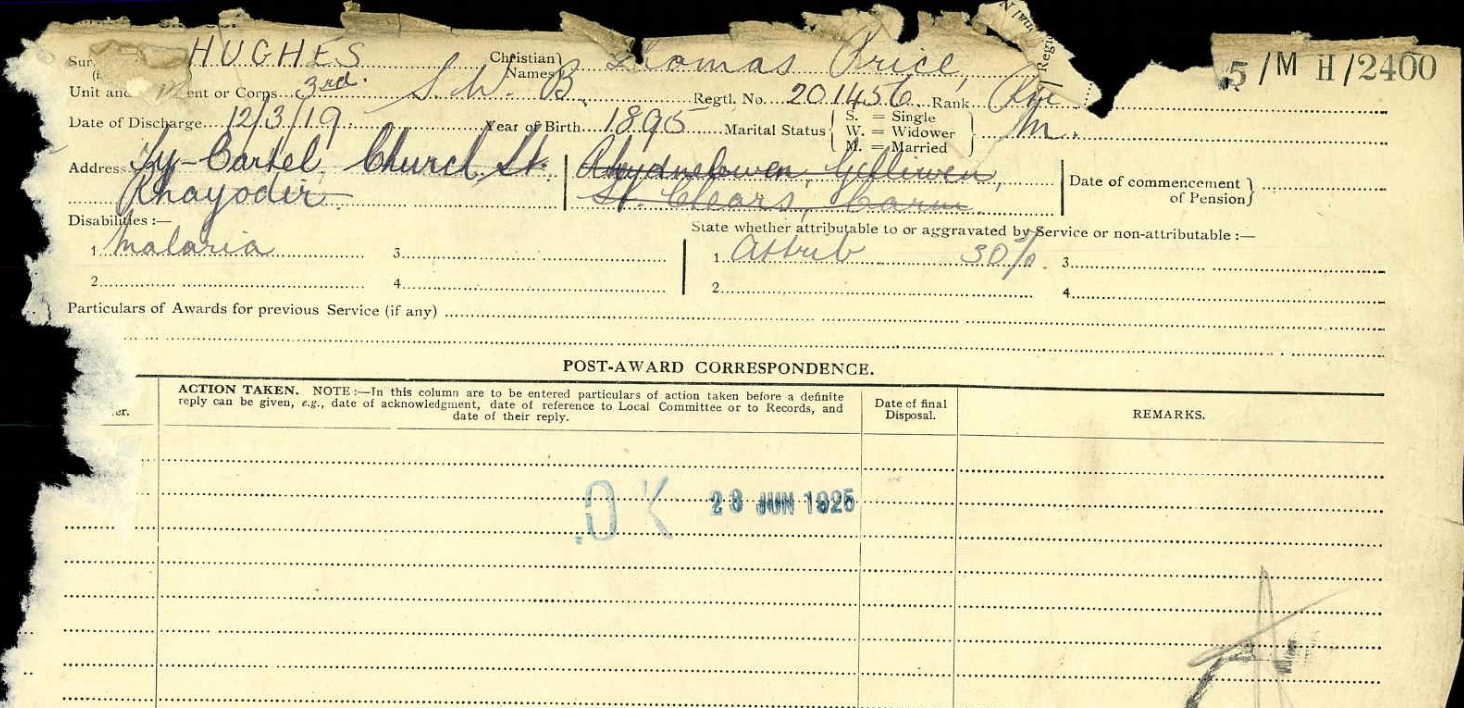 Sur HUGHES Christian Names Thomas Price, 5/M H/2400
Unit and ent or Corps 3rd. S. W. B. Regtl. No. 201456 Rank Pte
Date of Discharge 12/3/19 Year of Birth 1895 Marital Status S. = Single W. = Widower M. = Married M.
Address Ty-Cartel Church St. Gelliwen,
Rhayoder St. Clears, Carm Date of commencement of Pension
Disabilities :— State whether attributable to or aggravated by Service or non-attributable :—
1 Malaria 3 1 Attrib 30% 3
2 4 2 4
Particulars of Awards for previous Service (if any)
POST-AWARD CORRESPONDENCE.
er. ACTION TAKEN. NOTE :—In this column are to be entered particulars of action taken before a definite
reply can be given, e.g., date of acknowledgment, date of reference to Local Committee or to Records, and
date of their reply.
Date of final
Disposal.
REMARKS.
OK 23 JUN 1925